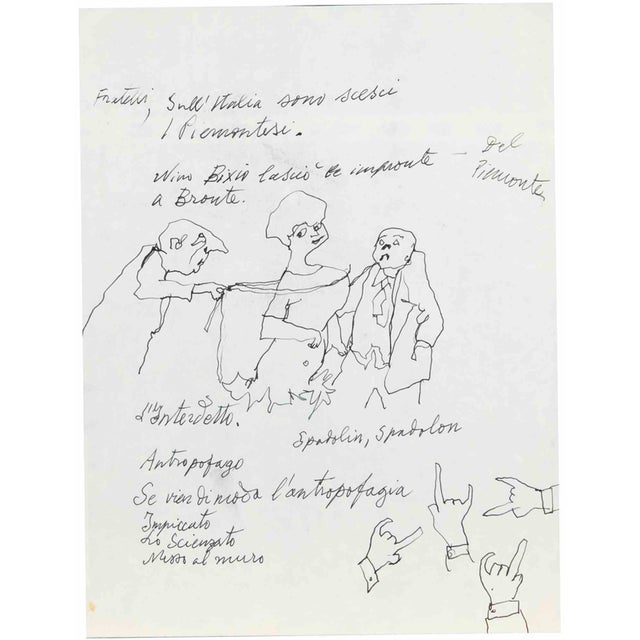 Fratelli, Sull'Italia sono scesi
I Piemontesi.
Nino Bixio lasciò le impronte — Del Piemonte
a Bronte.
L'Interdetto.
Spadolin, Spadolon
Antropofago
Se vien di moda l'antropofagia
Impiccato
Lo Scienzato
Messo al muro